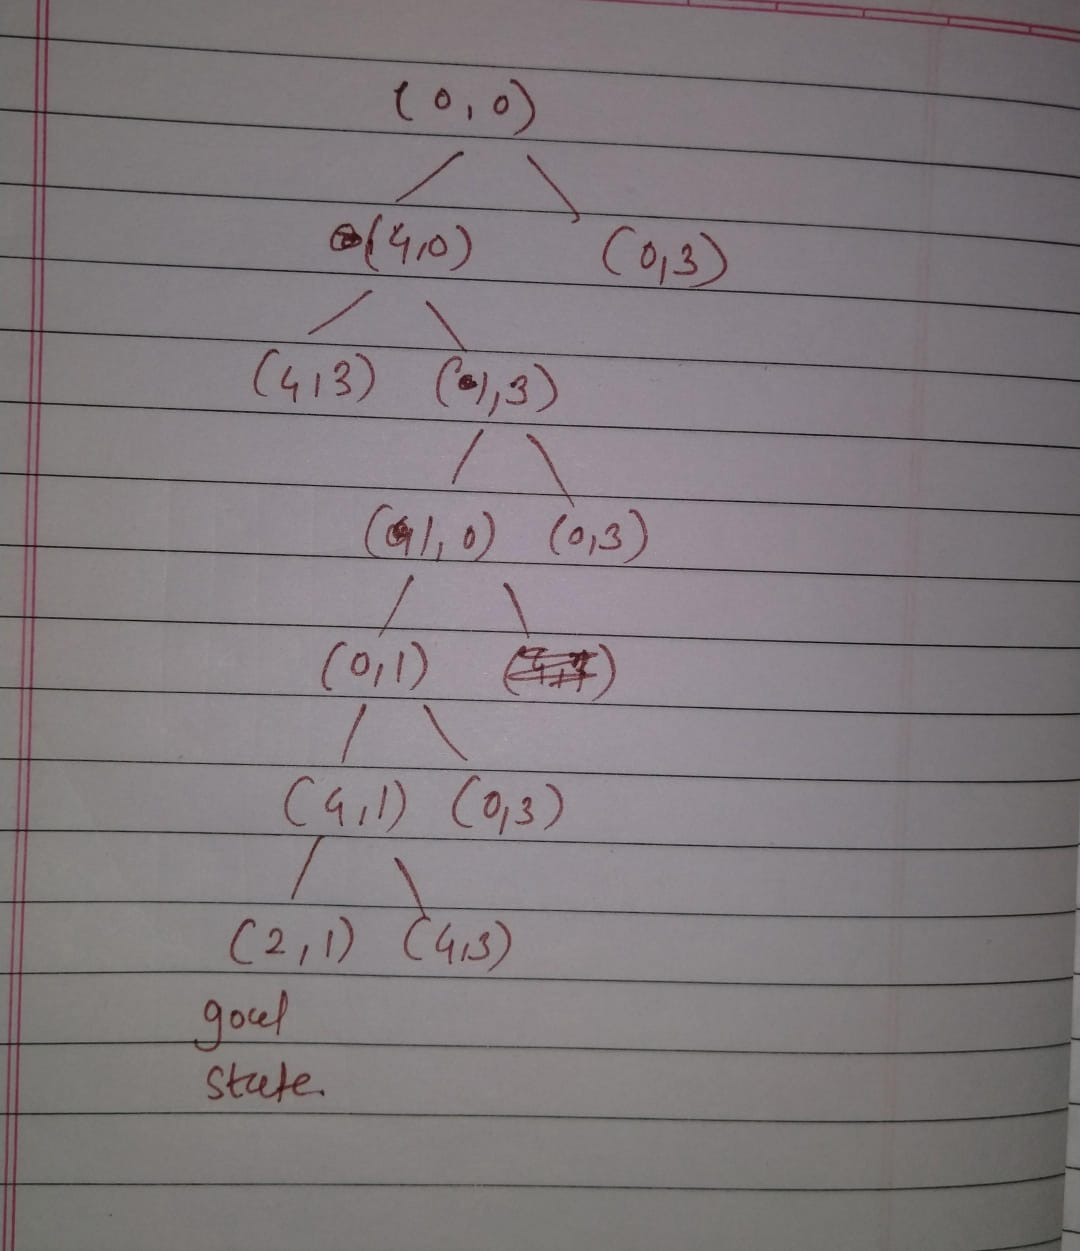 (0,0)
(4,0) (0,3)
(4,3) (1,3)
(1,0) (0,3)
(0,1)
(4,1) (0,3)
(2,1) (4,3)
goal
state.